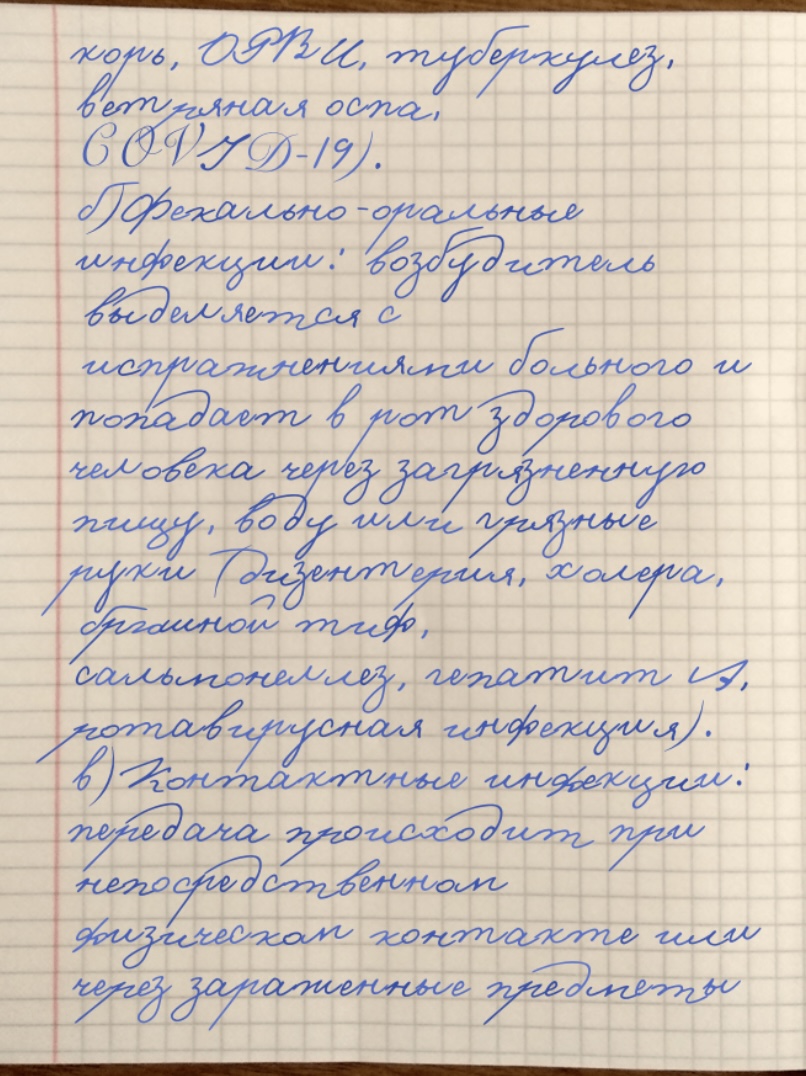 корь, ОРВИ, туберкулез,
ветряная оспа,
COVID-19).
б) Фекально-оральные
инфекции: возбудитель
выделяется с
испражнениями больного и
попадает в рот здорового
человека через загрязненную
пищу, воду или грязные
руки (дизентерия, холера,
брюшной тиф,
сальмонеллез, гепатит А,
ротавирусная инфекция).
в) Контактные инфекции:
передача происходит при
непосредственном
физическом контакте или
через зараженные предметы